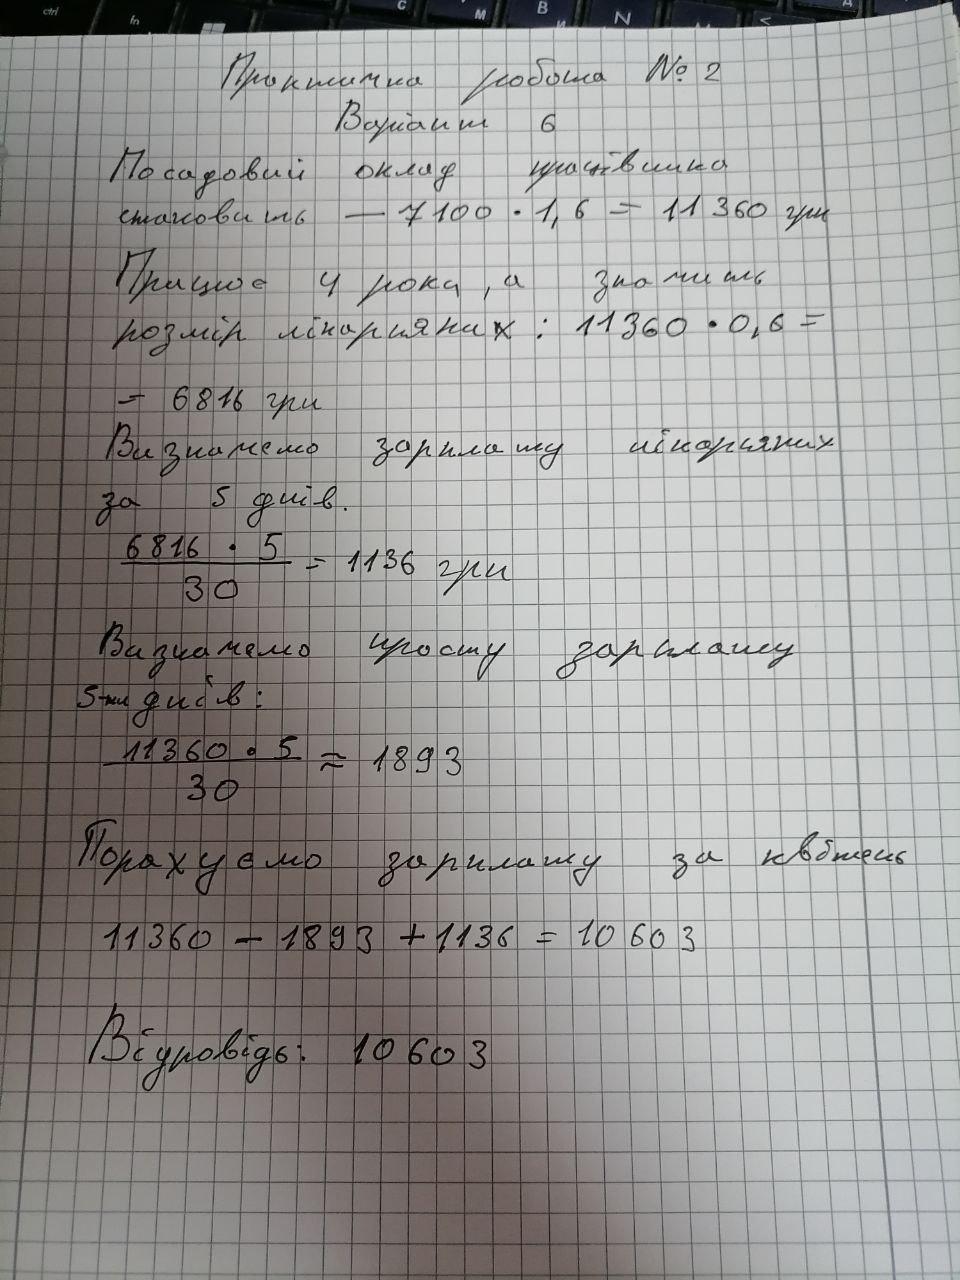 Практична робота № 2
Варіант 6
Посадовий оклад працівника
становить — 7100 · 1,6 = 11360 грн
Працює 4 рока, а значить
розмір лікарняних : 11360 · 0,6 =
= 6816 грн
Визначемо зарплату лікарняних
за 5 днів.
6816 · 5 / 30 = 1136 грн
Визначемо просту зарплату
5-ти днів:
11360 · 5 / 30 ≈ 1893
Порахуємо зарплату за квітень
11360 - 1893 + 1136 = 10603
Відповідь: 10603